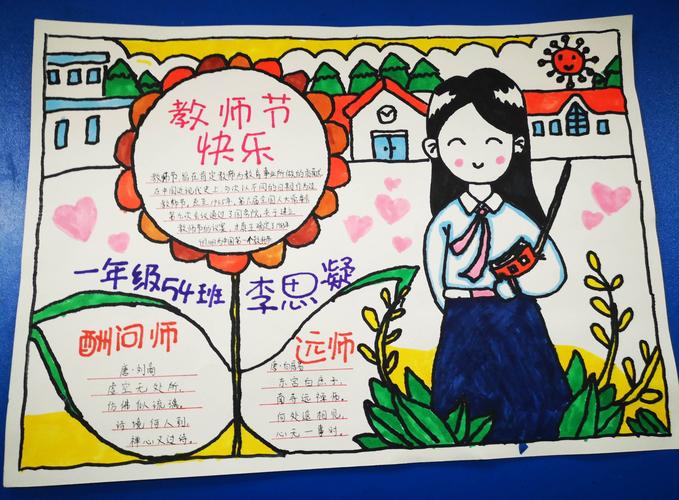 教师节
快乐
教师节,旨在肯定教师为教育事业所做的贡献
在中国近现代史上,多次以不同的日期作为过
教师节,直至1985年,第六届全国人大常委
第九次会议通过了国务院关于建立
教师节的议案,
一年级54班
李思凝
酬问师
唐·刘商
虚空无处所,
仿佛似琉璃。
诗境何人到,
禅心又过诗。
远师
唐·白居易
东宫白庶子,
南寺远禅师。
何处遥相见,
心无一事时。